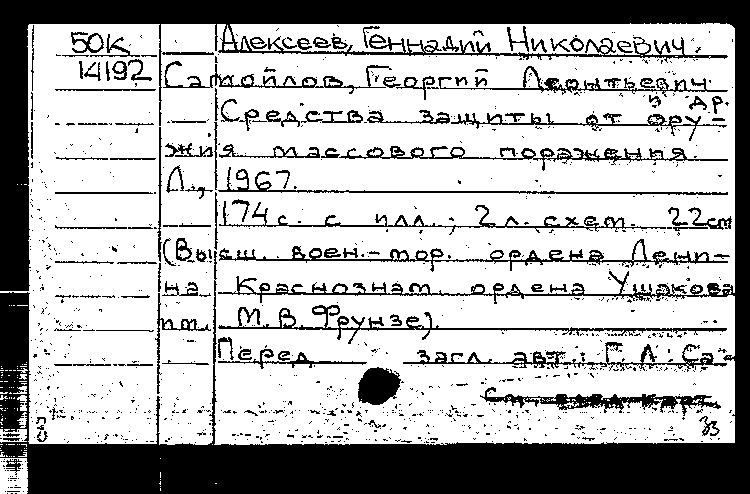 50К Алексеев, Геннадий Николаевич.
14192 Самойлов, Георгий Леонтьевич
и др.
Средства защиты от ору-
жия массового поражения.
Л., 1967.
174 с. с илл.; 2 л. схем. 22 см
(Высш. воен.-мор. ордена Лени-
на Краснознам. ордена Ушакова
им. М. В. Фрунзе).
Перед загл. авт.: Г. Л. Са-
См. след. карт.